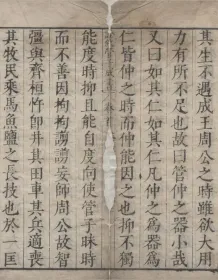 其生不遇成王周公之時雖欲大用
力有所不足也故曰管仲之器小哉
又曰如其仁如其仁凡仲之為器為
仁皆仲之時而仲能因之也抑不獨
能度時抑且能自度向使管子昧時
而不善因拘拘謭謭妄師周公故智
彊與齊桓竹卹井其田車其兵適喪
其牧民乘馬魚鹽之長技也於一匡